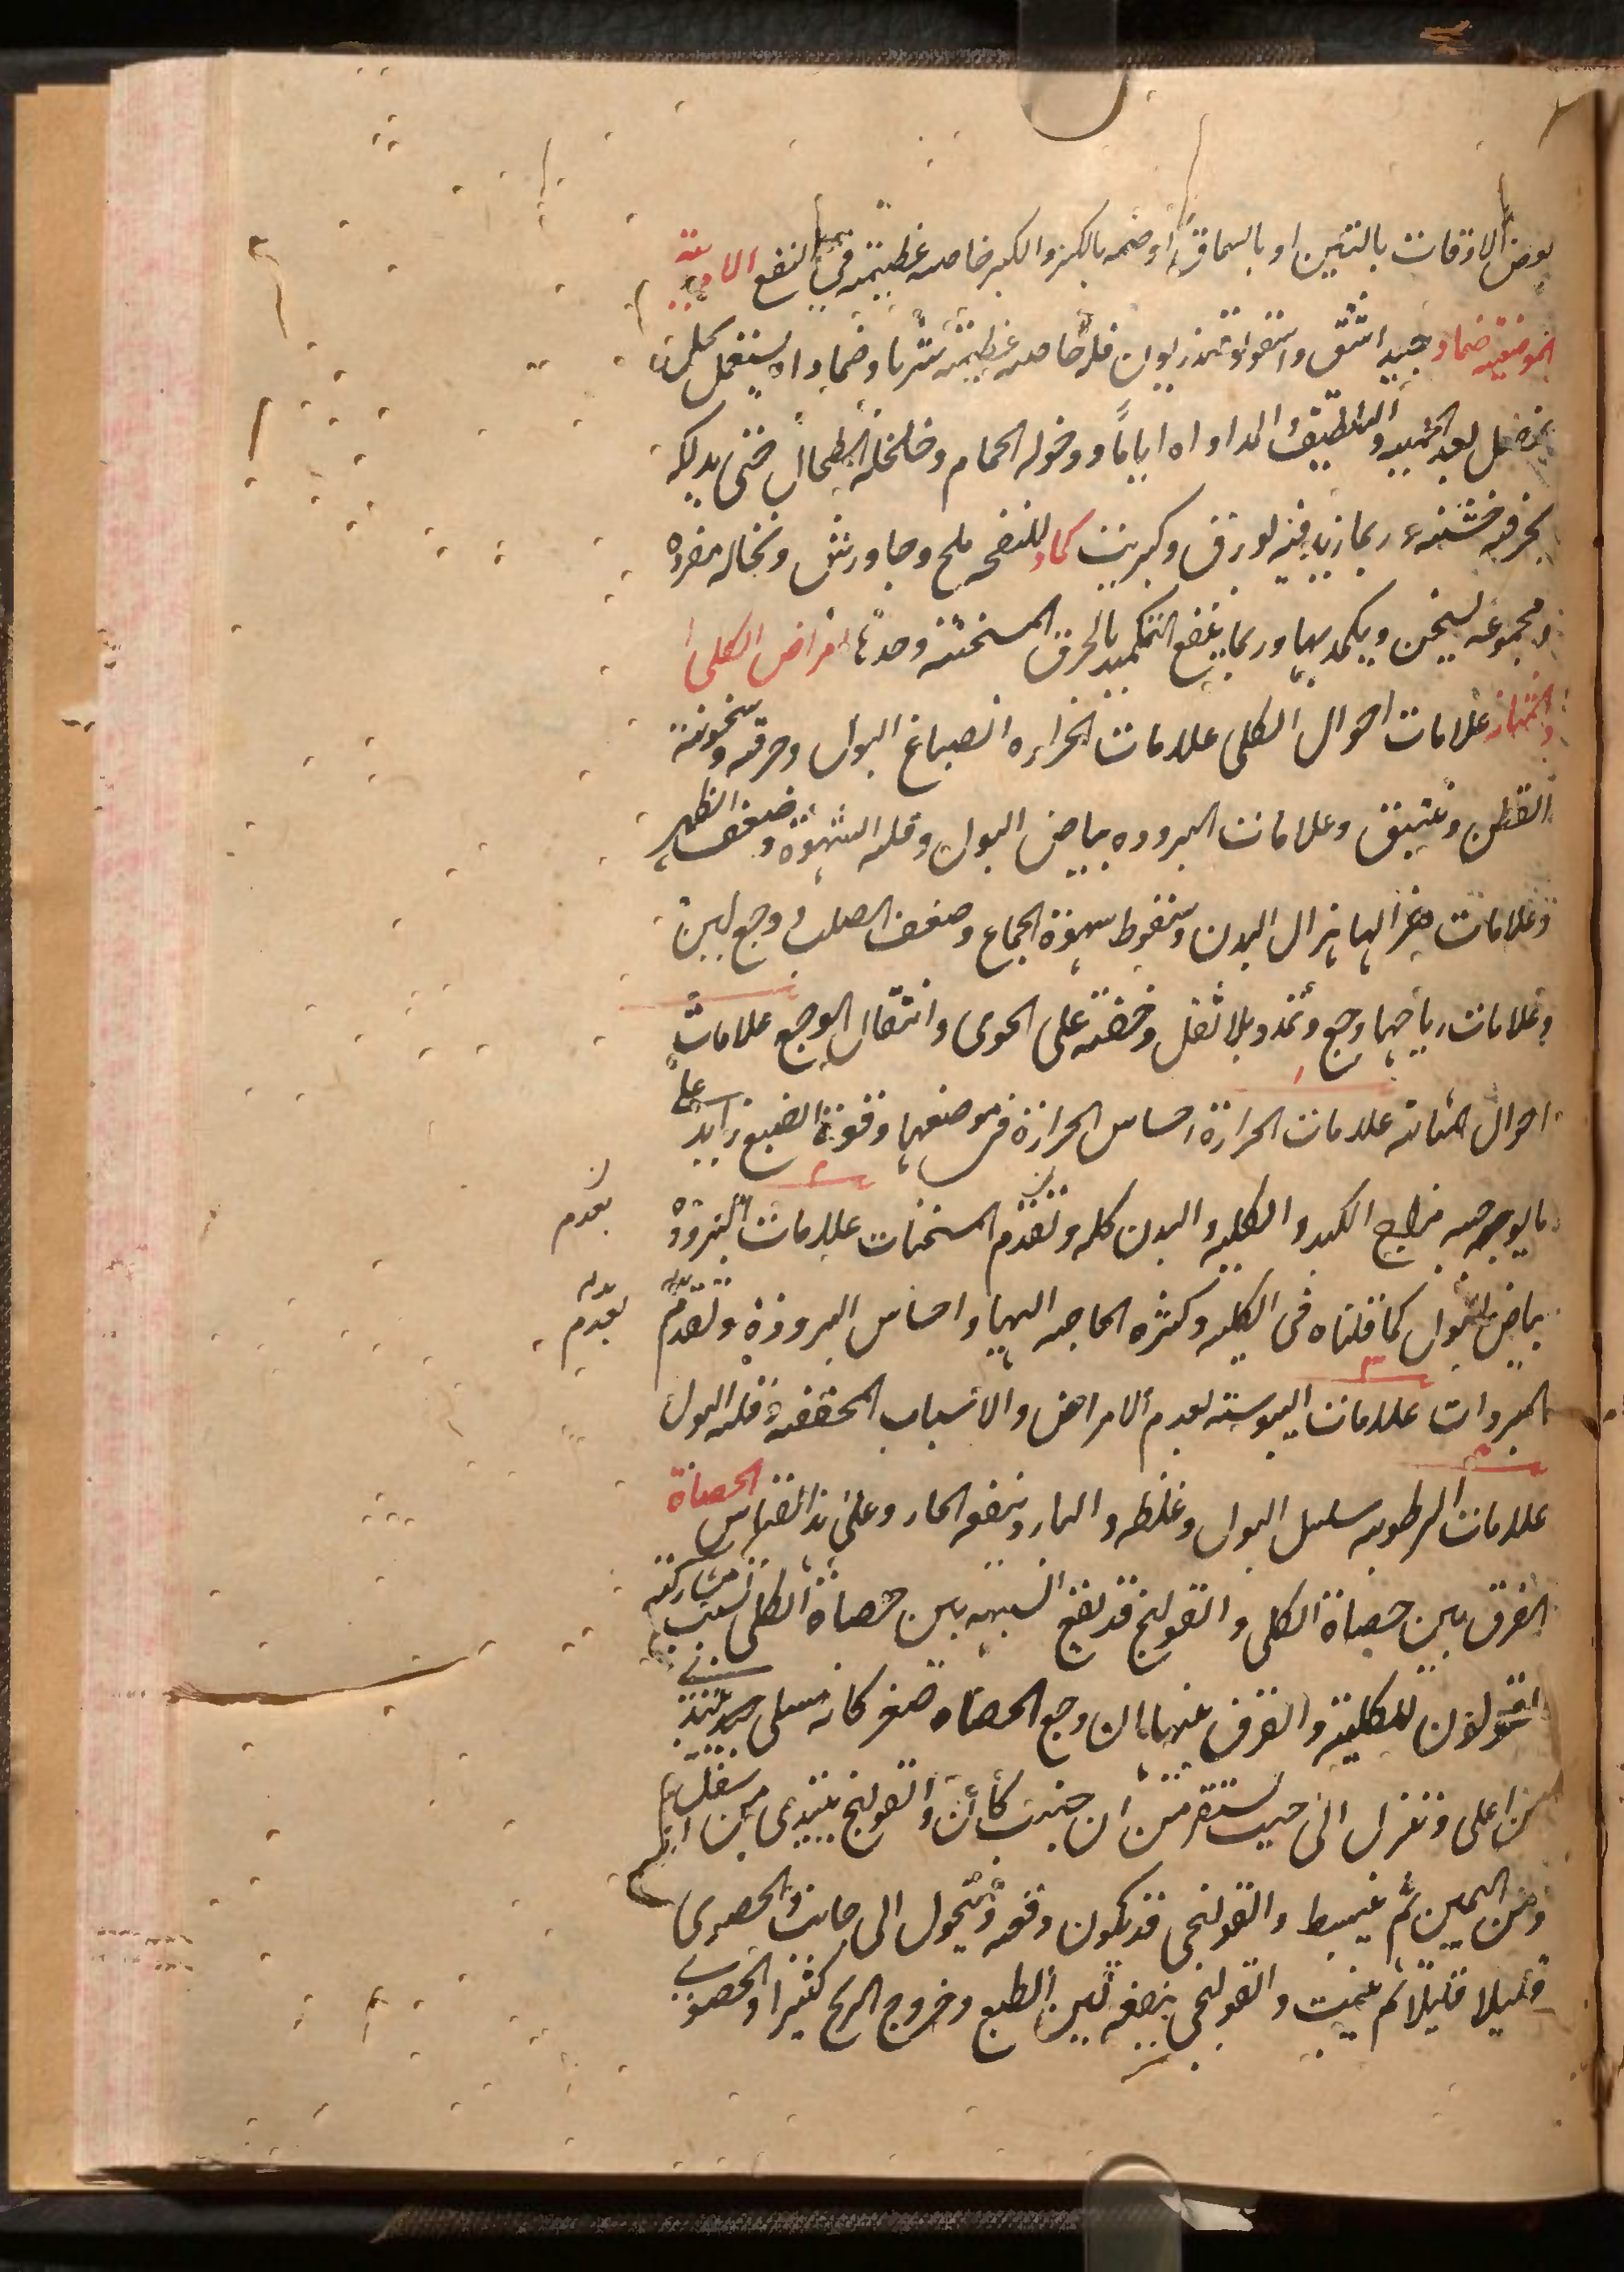 بعض الاوقات بالتين او بالسماق او ضمه بالكبر والكبر خاصه عظيمه في النفع الادوية
الموضعيه ضماد جيد اشق واسقولوقندريون فله خاصه عظيمه شربا وضمادا يستعمل بخل
بعد التنقيه والتلطيف المداواه اياما ودخوله الحمام وخلخلة الطحال حتى يدلكه
بخرقه خشنه ربما زيد فيه بورق وكبريت كماد للنفخ ملح وجاورش ونخاله مفرده
ومجموعه يسخن ويكمد بها وربما ينفع التكميد بالخرق المسخنه وحدها امراض الكلى
والمثانه علامات احوال الكلى علامات الحراره انصباغ البول وحرقه وسخونة
القطن وعلامات البروده بياض البول وقله الشهوة وضعف الظهر
وعلامات هزالها هزال البدن وسقوط شهوة الجماع وضعف الصلب ووجع لين
وعلامات رياحها وجع وتمدد بلا ثقل وخفته على الخوى وانتقال الوجع علامات
احوال المثانه علامات الحرارة احساس الحرارة في موضعها وقوة الصبغ زايد على
ما يوجبه مزاج الكبد والكليه والبدن كله وتقدم المسخنات علامات البرودة
تقدم
بياض البول كما قلناه في الكليه وكثره الحاجه اليها واحساس البرودة وتقدم
تقدم
المبردات علامات اليبوسه تقدم الامراض والاسباب المجففه قله البول
علامات الرطوبه سلسل البول وغلظه والبارد ينفعه الحار وعلى هذا القياس الحصاة
الفرق بين حصاة الكلى والقولنج قد يقع الشبهه بين حصاة الكلى لسبب مشاركه
القولون للكلية والفرق بينهما ان وجع الحصاه صغير كانه مسلى يبتدي
من اعلى وينزل الى حيث يستقر من ان جنب كان والقولنج يبتدى من اسفل
ومن اليمين ثم ينبسط والقولنجى قد يكون دفعه ويتحول الى جانب والحصوى
قليلا قليلا ثم يثبت والقولنجى ينفعه لين الطبع وخروج الريح كثيرا والحصوى